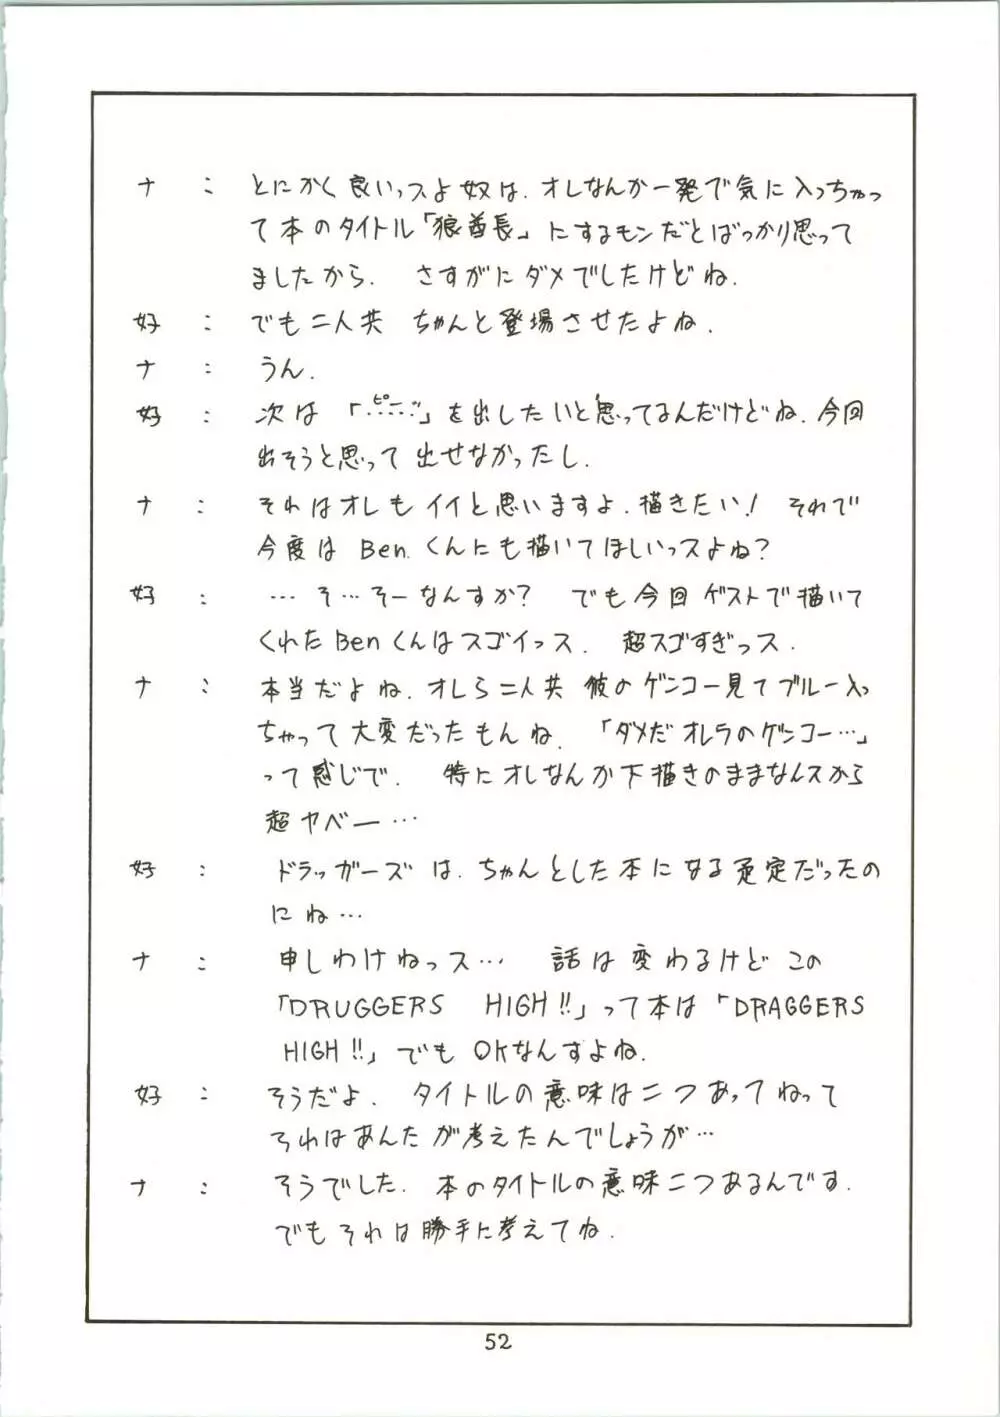 ナ : とにかく良いっスよ奴は、オレなんか一発で気に入っちゃっ
て本のタイトル「狼酋長」にするモンだとばっかり思って
ましたから. さすがにダメでしたけどね.
好 : でも二人共 ちゃんと登場させたよね.
ナ : うん.
ピー
好 : 次は「‥‥‥」を出したいと思ってるんだけどね.今回
出そうと思って出せなかったし.
ナ : それはオレもイイと思いますよ.描きたい! それで
今度は Ben.くんにも描いてほしいっスよね?
好 : …そ…そーなんすか? でも今回ゲストで描いて
くれたBenくんはスゴイっス. 超スゴすぎっス.
ナ : 本当だよね.オレら二人共 彼のゲンコー見てブルー入っ
ちゃって大変だったもんね. 「ダメだオレラのゲンコー…」
って感じで. 特にオレなんか下描きのままなんスから
超ヤベー…
好 : ドラッガーズは、ちゃんとした本になる予定だったの
にね…
ナ : 申しわけねっス… 話は変わるけどこの
「DRUGGERS HIGH!!」って本は「DRAGGERS
HIGH!!」でもOKなんすよね.
好 : そうだよ. タイトルの意味は二つあってねって
それはあんたが考えたんでしょうが…
ナ : そうでした. 本のタイトルの意味二つあるんです.
でもそれは勝手に考えてね.
52